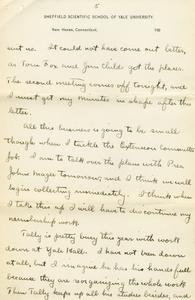 5
SHEFFIELD SCIENTIFIC SCHOOL OF YALE UNIVERSITY.
New Haven, Connecticut, 190
out so. It could not have come out better,
as Tom Fox and Jim Child got the places.
The second meeting comes off tonight, and
I must get my minutes in shape after the
latter.
All this business is going to be small
though when I tackle the Extension Committee
Job. I am to talk over the plans with Prex
Johns Mager tomorrow, and I think we will
begin collecting immediately. I think when
I take this up I will have to discontinue my
membership work.
Tully is pretty busy this year with work
down at Yale Hall. I have not been down
at all, but I imagine he has his hands full
because they are reorganizing the whole work.
Then Tully keeps up all his studies besides, and